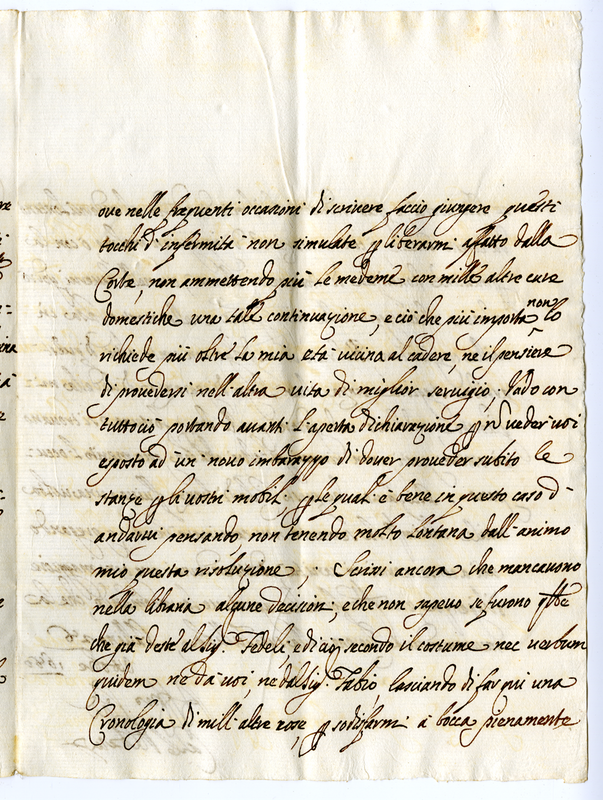 ove nelle frequenti occasioni di scrivere faccio giungere questi
tocchi d'infermità non simulate p liberarmi affatto dalla
Corte, non ammettendo più le medeme con mille altre cure
domestiche una tale continuazione, e ciò che più importa non lo
richiede più oltre la mia età vicina al cadere, ne il pensiere
di provedersi nell'altra vita di miglior servigio; Vado con
tuttociò portando avanti l'aperta dichiarazione p nō veder voi
esposto ad un novo imbarazzo di dover proveder subito le
stanze p li vostri mobili p le quali è bene in questo caso d'
andarvi pensando, non tenendo molto lontana dall'animo
mio questa risoluzione; Scrissi ancora che mancavono
nella libraria alcune decisioni, e che non sapevo se furono
che già deste al Sig. Fedele, e di ciò secondo il costume nec verbum
quidem ne da voi, ne dal Sig. Fabio lasciando di far qui una
Cronologia di mill'altre cose, p sodisfarmi à bocca pienamente